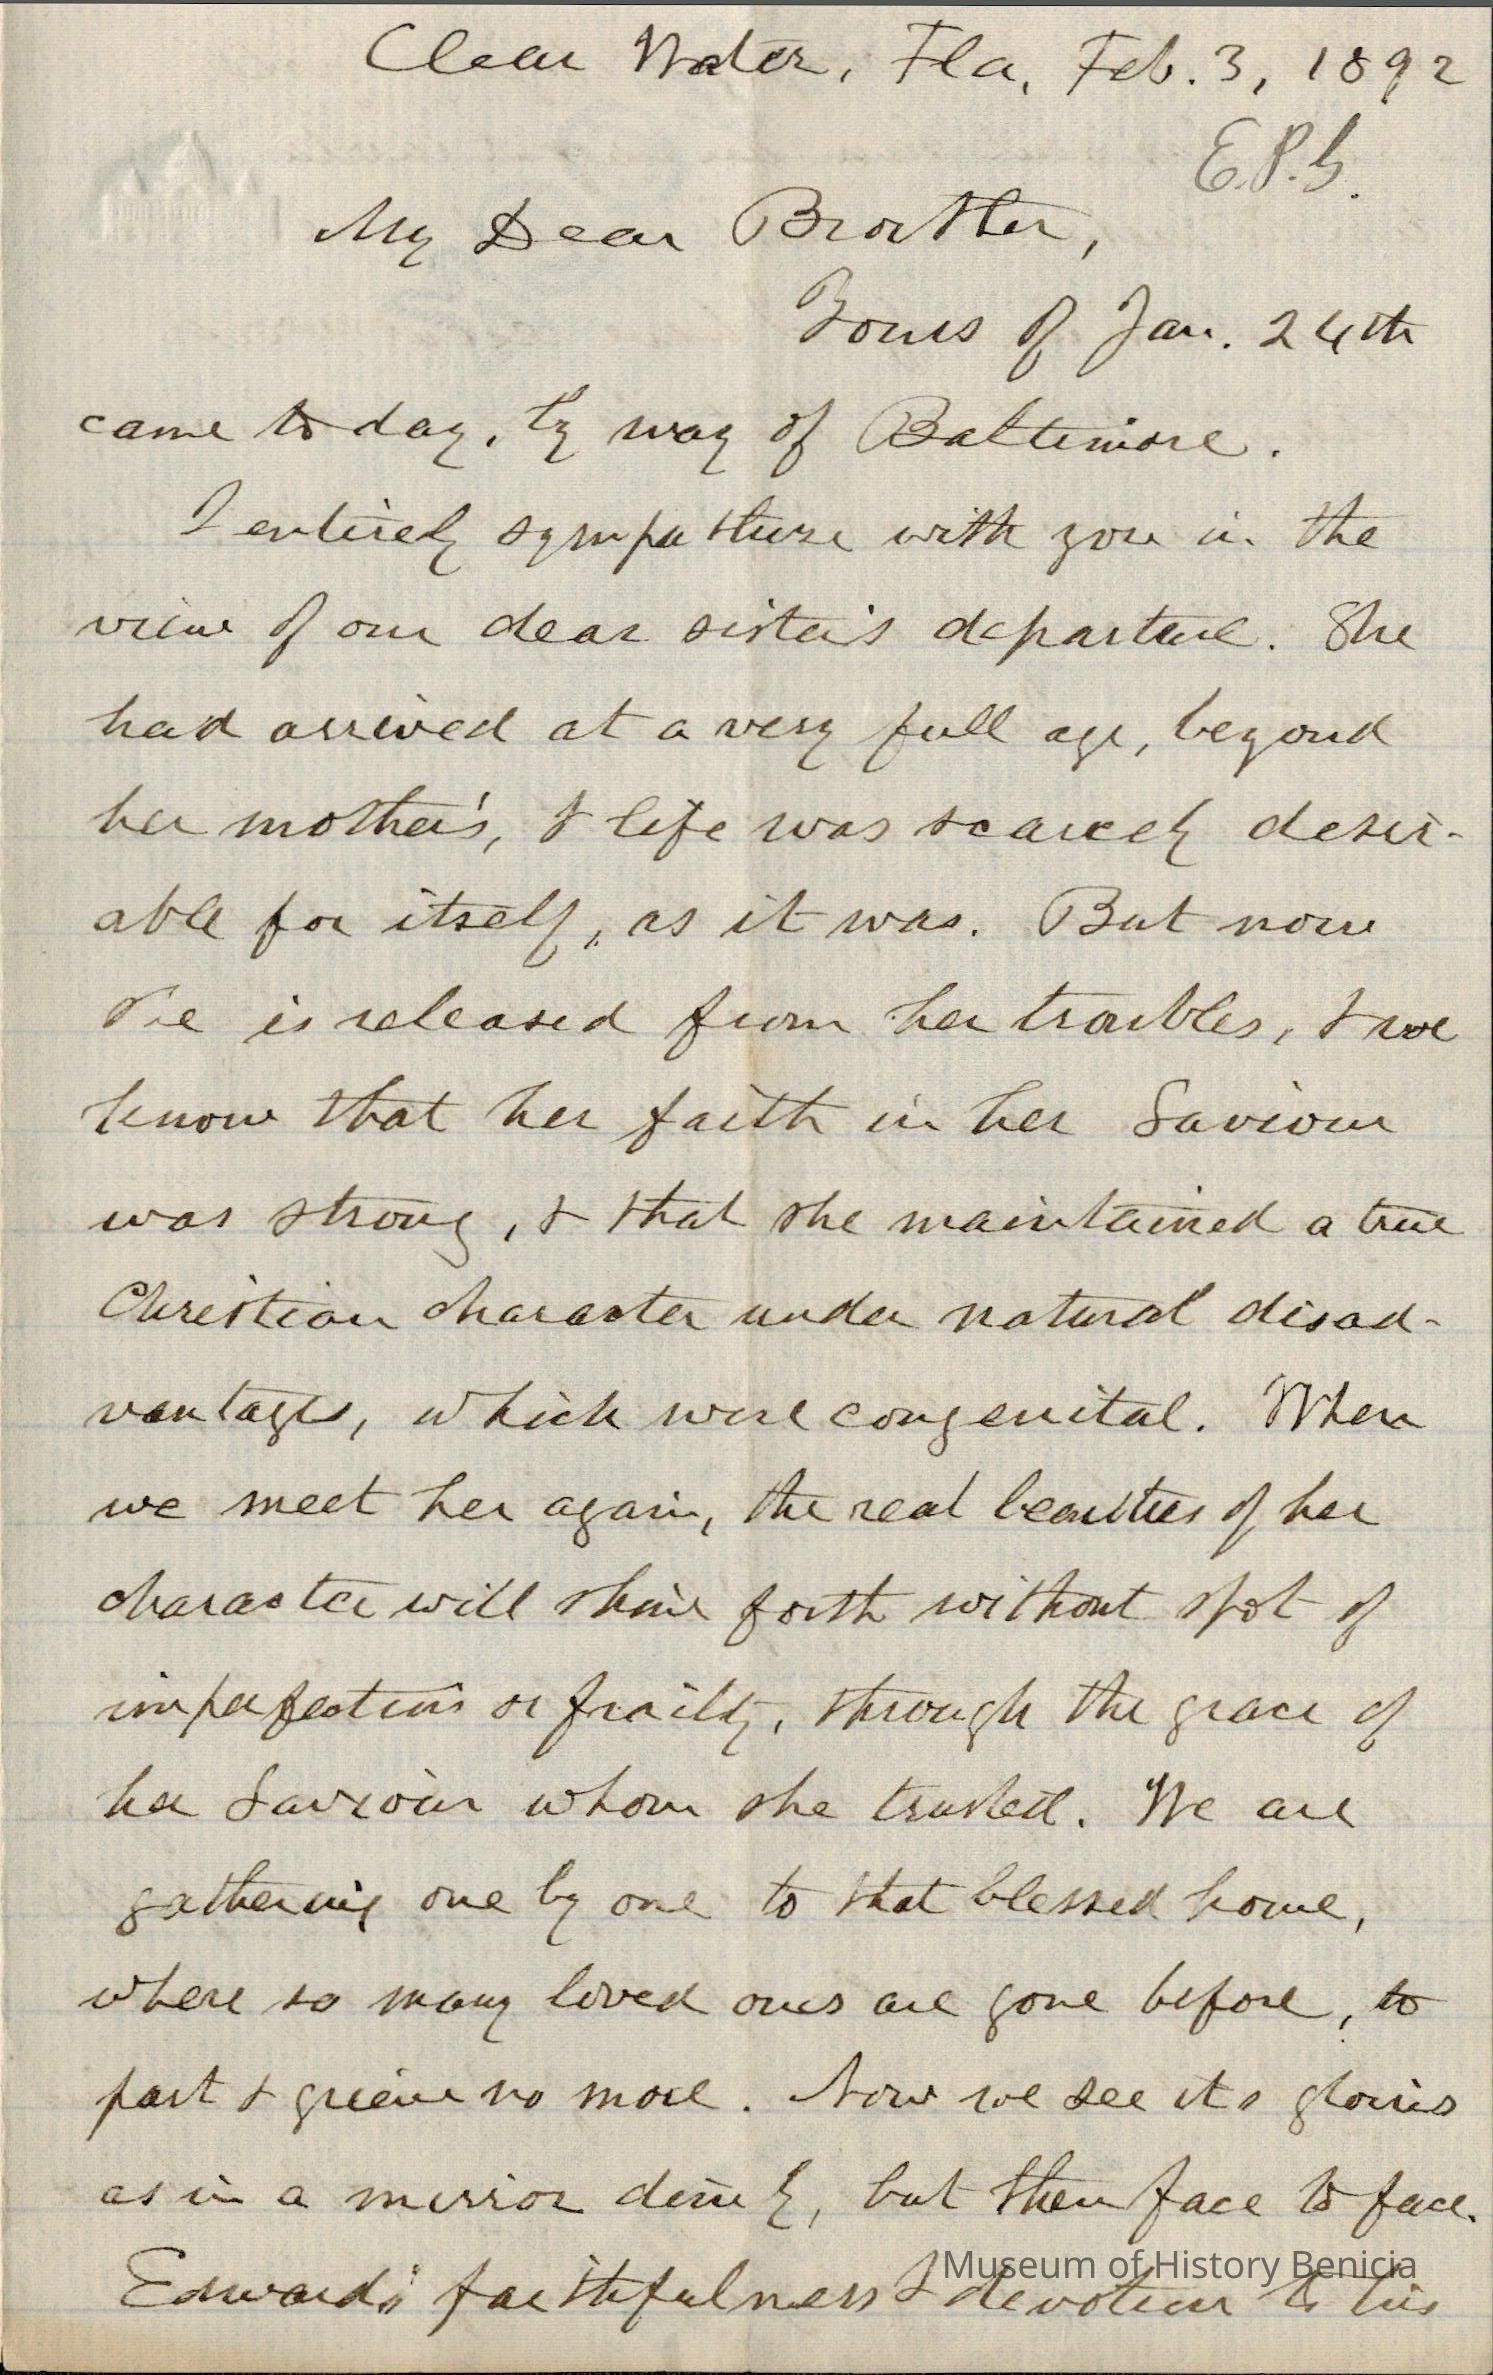 Clear Water, Fla, Feb. 3, 1892
E.P.G.
My Dear Brother,
Yours of Jan. 24th
came to day, by way of Baltimore.
I entirely sympathize with you in the
view of our dear sister's departure. She
had arrived at a very full age, beyond
her mother's, & life was scarcely desir-
able for itself, as it was. But now
she is released from her troubles, & we
know that her faith in her Saviour
was strong, & that she maintained a true
Christian character under natural disad-
vantages, which were congenital. When
we meet her again, the real beauties of her
character will shine forth without spot of
imperfections or frailty, through the grace of
her Saviour whom she trusted. We are
gathering one by one to that blessed home,
where so many loved ones are gone before, to
part & grieve no more. Now we see its glories
as in a mirror dimly, but then face to face.
Edward's faithfulness & devotion to his
Museum of History Benicia